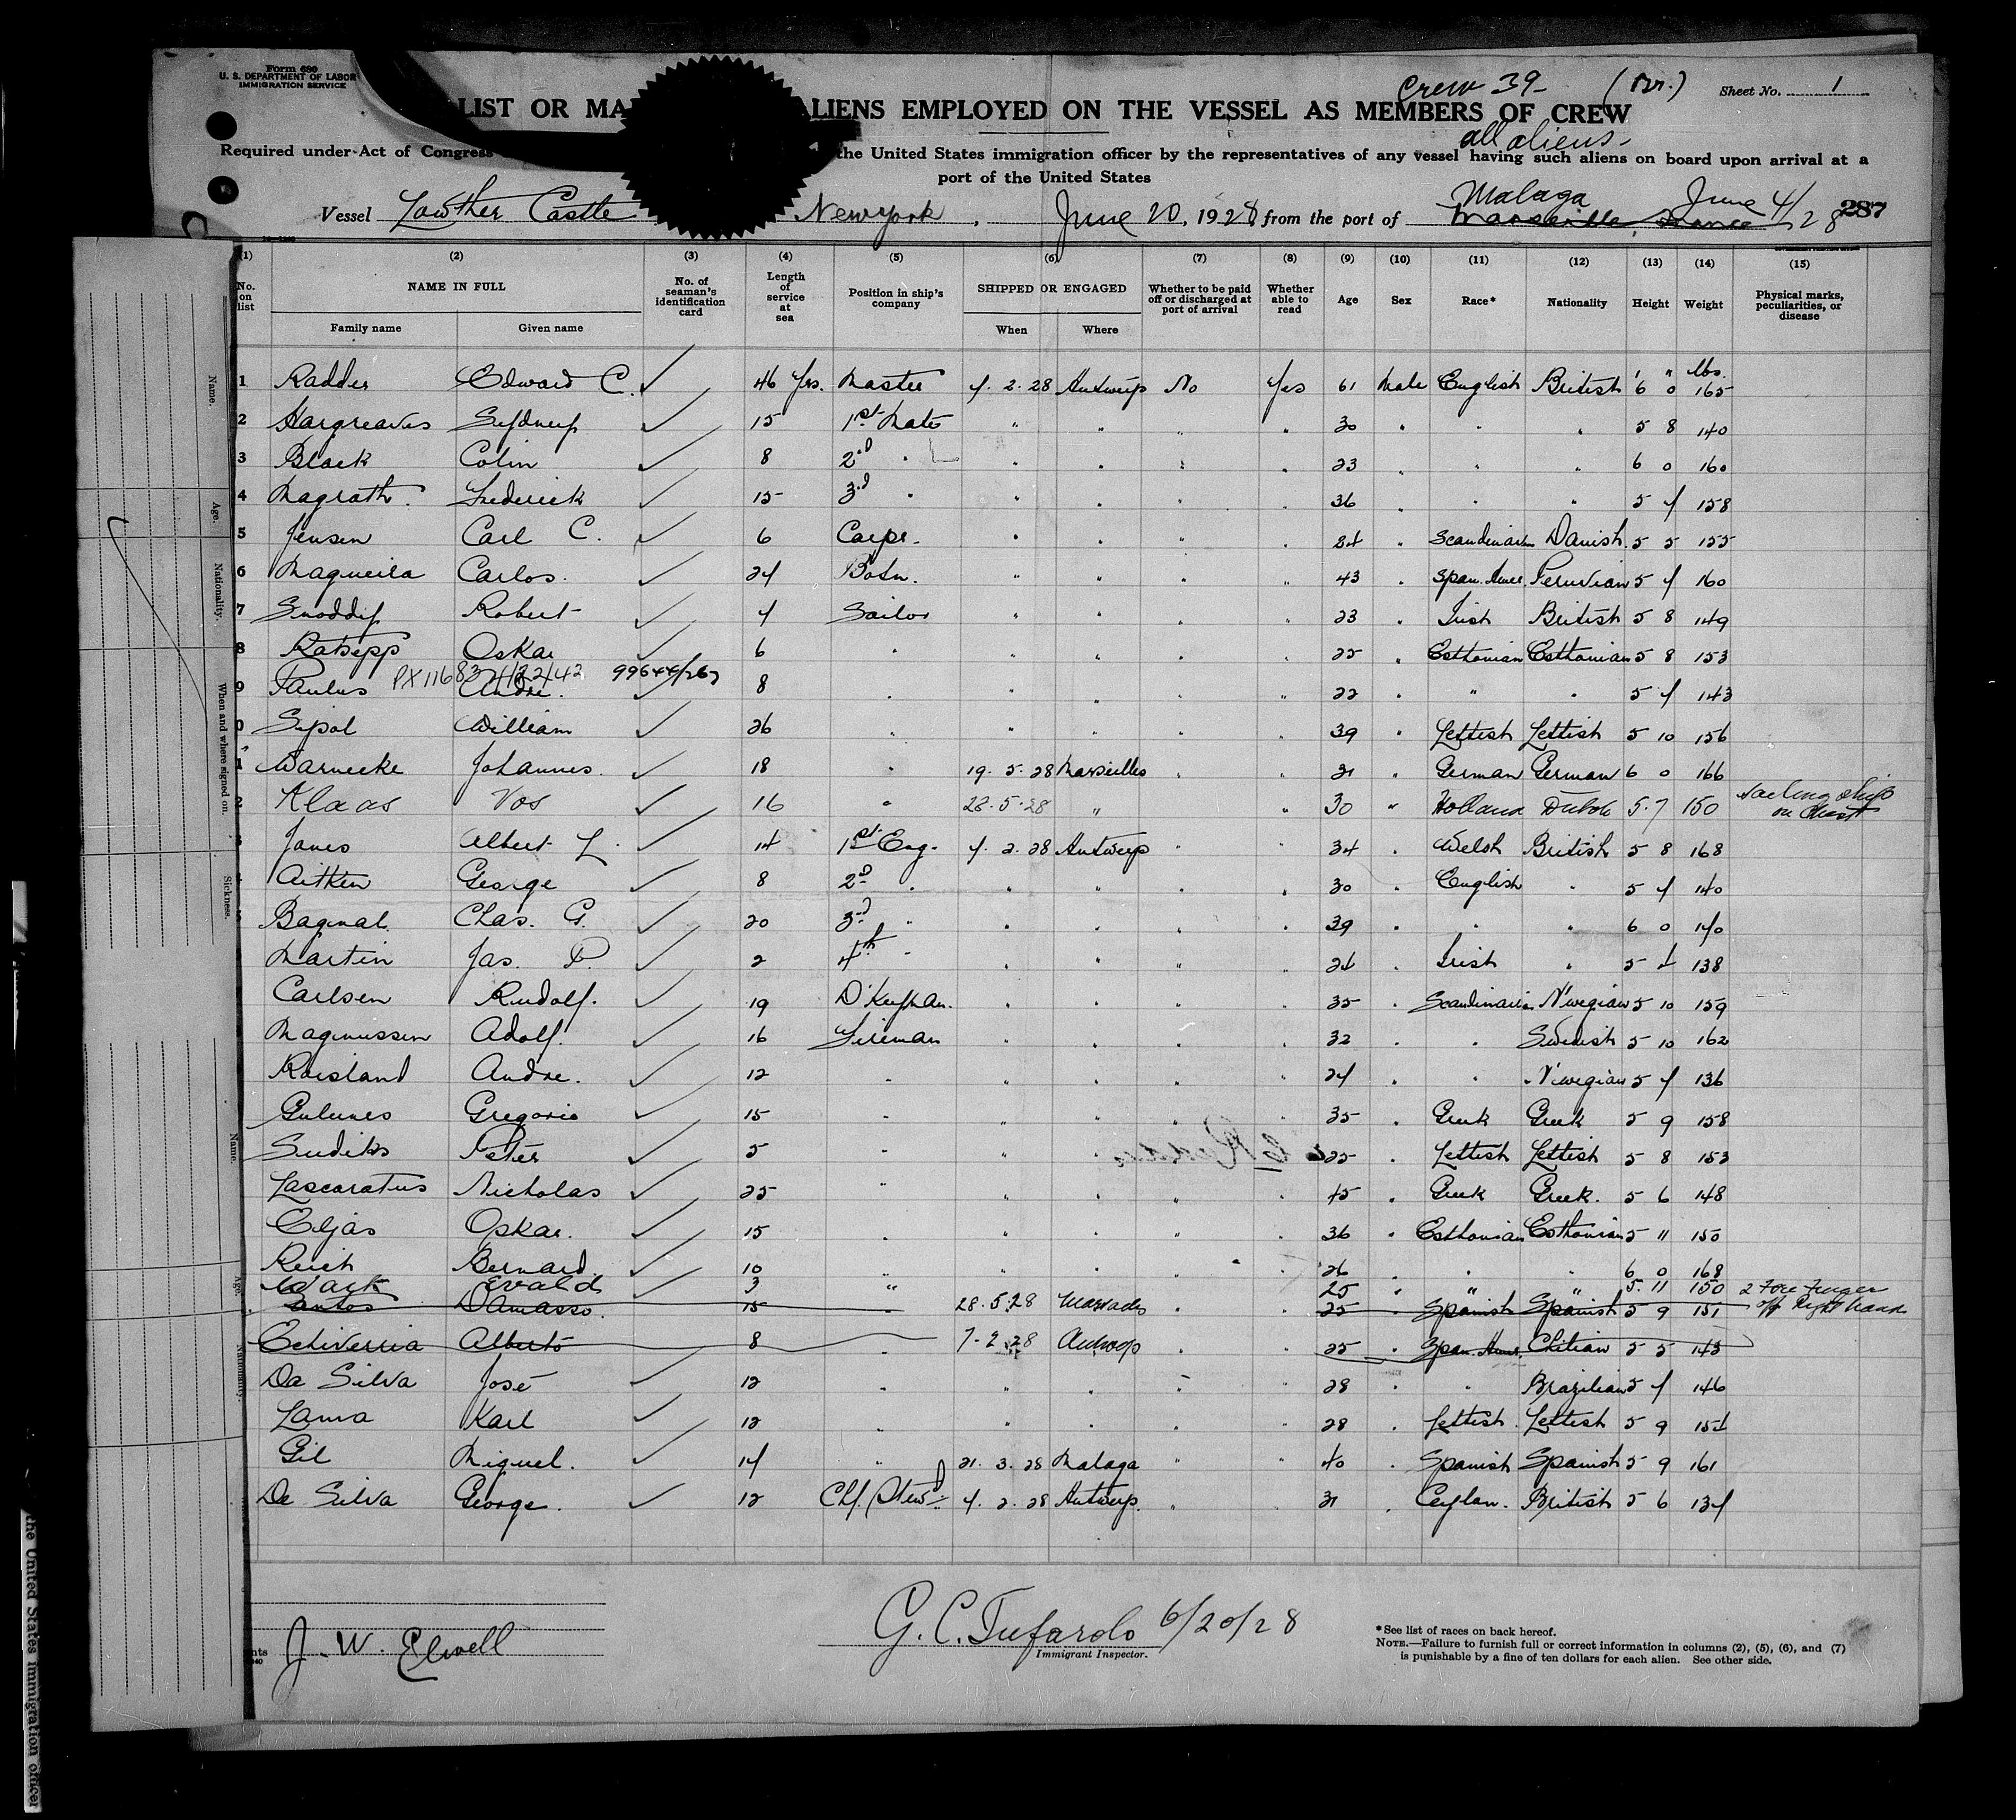 Form 680
U. S. DEPARTMENT OF LABOR
IMMIGRATION SERVICE
Crew 39 - (Br.) Sheet No. 1
LIST OR MA ALIENS EMPLOYED ON THE VESSEL AS MEMBERS OF CREW
all aliens -
Required under Act of Congress the United States immigration officer by the representatives of any vessel having such aliens on board upon arrival at a
port of the United States
Vessel Lowther Castle New York, June 20, 1928 from the port of Malaga June 4/28 287
Marseille, France
(1) (2) (3) (4) (5) (6) (7) (8) (9) (10) (11) (12) (13) (14) (15)
No. on list NAME IN FULL No. of seaman's identification card Length of service at sea Position in ship's company SHIPPED OR ENGAGED Whether to be paid off or discharged at port of arrival Whether able to read Age Sex Race* Nationality Height Weight Physical marks, peculiarities, or disease
Family name Given name When Where
1 Radder Edward C. 46 yrs. Master 4.2.28 Antwerp No Yes 61 Male English British 6 0 165 lbs.
2 Hargreaves Sydney 15 1st Mate " " " " 30 " " " 5 8 140
3 Black Colin 8 2nd " " " " " 23 " " " 6 0 160
4 Magrath Frederick 15 3rd " " " " " 36 " " " 5 4 158
5 Jensen Carl C. 6 Carpr. " " " " 24 " Scandinavian Danish 5 5 155
6 Maqueira Carlos. 24 Bosn. " " " " 43 " Span. Amer. Peruvian 5 4 160
7 Snoddy Robert 4 Sailor " " " " 23 " Irish British 5 8 149
8 Ratsepp Oskar 6 " " " " " 25 " Esthonian Esthonian 5 8 153
PX116837 4/22/42 99644/267
9 Paulus Andre. 8 " " " " " 22 " " " 5 4 143
0 Sipol William 26 " " " " " 39 " Lettish Lettish 5 10 156
1 Warnecke Johannes. 18 " 19.5.28 Marseilles " " 31 " German German 6 0 166
2 Klaas Vos 16 " 28.5.28 " " 30 " Holland Dutch 5.7 150 Sailing ship on Chest
3 Jones Albert L. 14 1st Eng. 4.2.28 Antwerp " " 34 " Welsh British 5 8 168
4 Aitken George 8 2nd " " " " " 30 " English " 5 4 140
5 Bagnal. Chas. G. 20 3rd " " " " " 39 " " " 6 0 140
Martin Jas. P. 2 4th " " " " " 24 " Irish " 5 4 138
Carlsen Rudolf. 19 D'Keyman. " " " " 35 " Scandinavian N'wegian 5 10 159
Magnussen Adolf. 16 Fireman " " " " 32 " " Swedish 5 10 162
Roisland Andre. 12 " " " " " 24 " " N'wegian 5 4 136
Gulunes Gregorio 15 " " " " " 35 " Greek Greek 5 9 158
Sudiks Peter 5 " " " " " 25 " Lettish Lettish 5 8 153
Lascaratus Nicholas 25 " " " " " 45 " Greek Greek. 5 6 148
Eljas Oskar. 15 " " " " " 36 " Esthonian Esthonian 5 11 150
Reich Bernard 10 " " " " " 26 " " " 6 0 168
Wark Evald 3 " 25 " " " 5.11 150 2 Fore Finger
Santos Damasso. 15 " 28.5.28 " " 25 " Spanish Spanish 5 9 151 off Right hand
Echiverria Alberto 8 " 7-2-28 Antwerp " " 25 " Span. Amer. Chilian 5 5 143
Da Silva José 12 " " " " " 28 " " Brazilian 5 4 146
Lama Karl 12 " " " " 28 " Lettish Lettish 5 9 154
Gil Miguel. 14 " 21.3.28 Malaga " " 40 " Spanish Spanish 5 9 161
De Silva George. 12 Chf. Stewd. 4.2.28 Antwerp. " 31 " Ceylon. British 5 6 134
J. W. Elwell
G. C. Tufarolo 6/20/28
Immigrant Inspector.
*See list of races on back hereof.
NOTE.—Failure to furnish full or correct information in columns (2), (5), (6), and (7)
is punishable by a fine of ten dollars for each alien. See other side.
Name.
Age.
Nationality.
When and where signed on.
Sickness.
Name.
Age.
Nationality.
the United States immigration officer